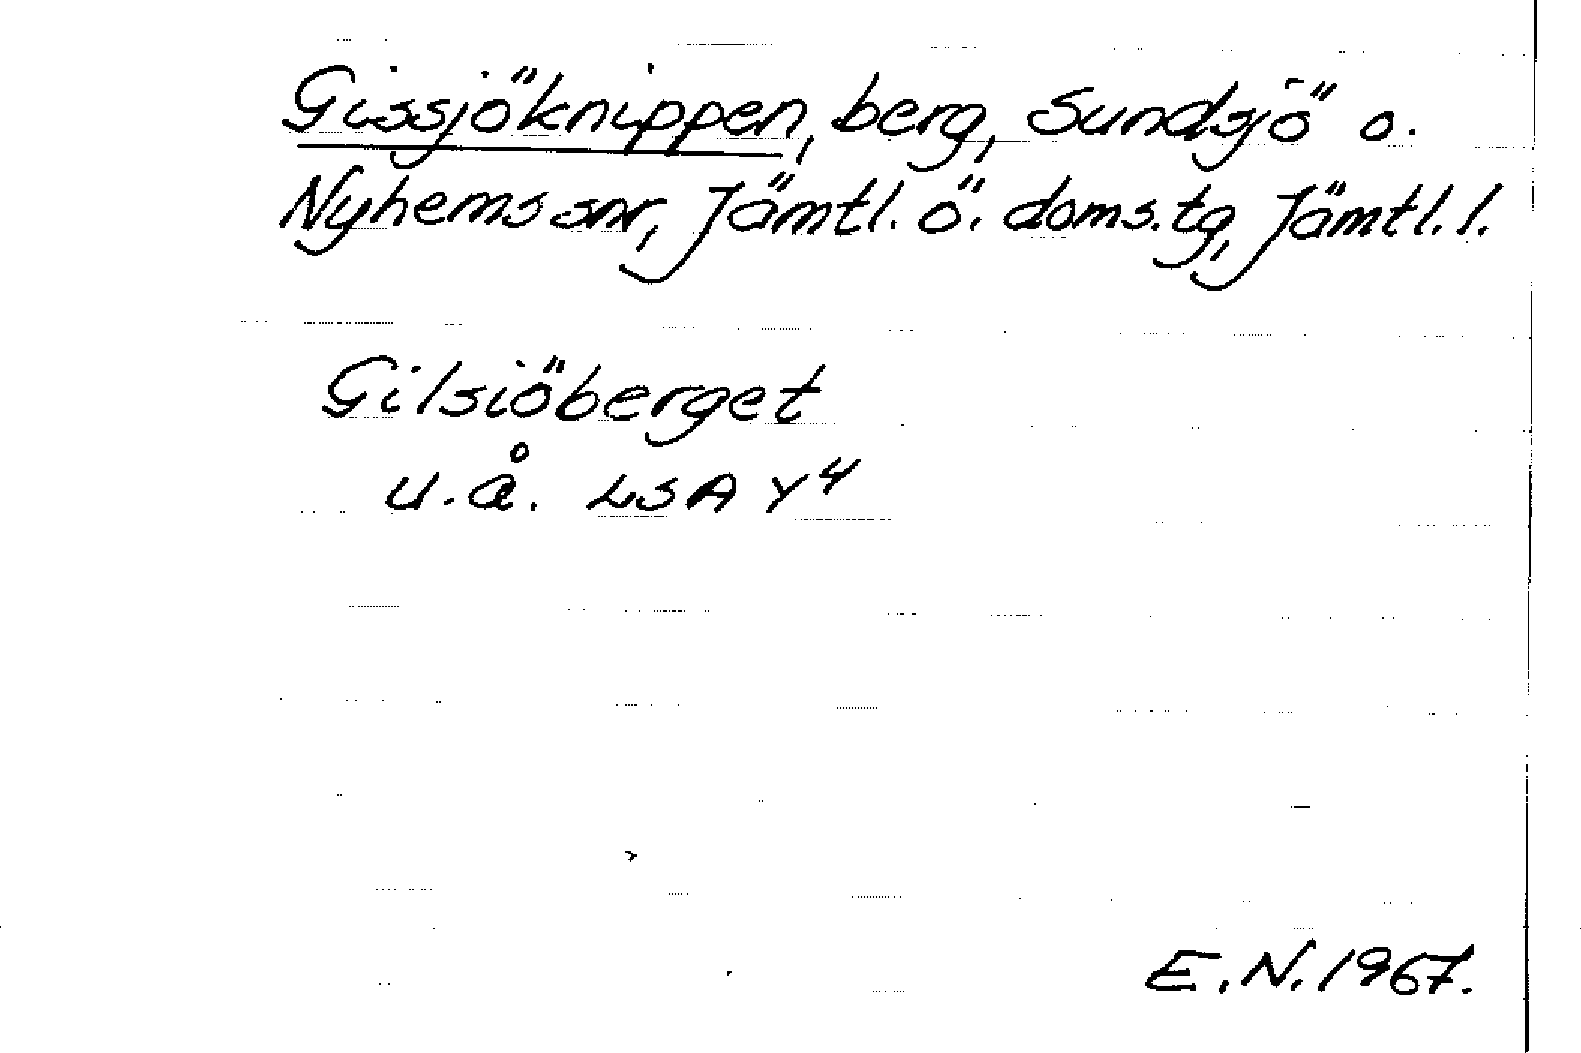 Gissjöknippen, berg, Sundsjö o.
Nyhems snr, Jämtl. ö. doms.tg, Jämtl. l.
Gilsiöberget
u.å. LSA Y4
E.N. 1967.